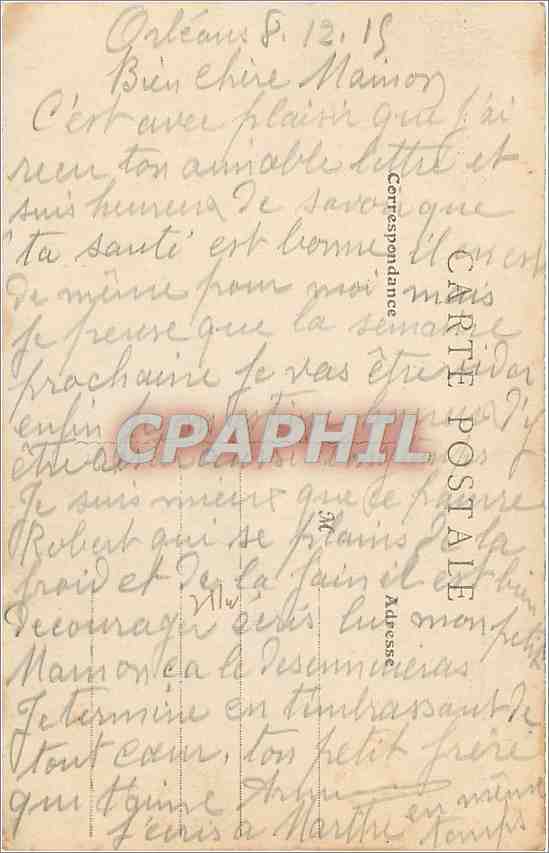 Orléans 8.12.15
Bien chère Mainon
C'est avec plaisir que j'ai
recu ton aimable lettre et
suis heureux de savoir que
ta santé est bonne il en est
de même pour moi mais
je pense que la semaine
prochaine je vas être
enfin d'y
être
Je suis mieux que ce pauvre
Robert qui se plains de la
froid et de la faim il est bien
decourager écris lui mon petit
Mainon ca le desennuieras
Je termine en t'embrassant de
tout cœur, ton petit frère
qui t'aime
J'écris a Marthe en même
temps
CPAPHIL
Correspondance
CARTE POSTALE
M
Adresse